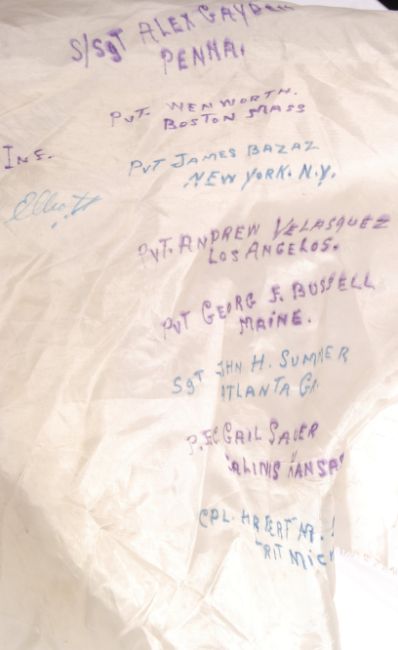 S/SgT ALEX GAYDEN
PENNA.
PVT. WENWORTH.
BOSTON MASS
INS.
PVT JAMES BAZAZ
NEW YORK. N.Y.
Elliott
PVT. ANDREW VELASQUEZ
LOS ANGELOS.
PVT GEORG F. BUSSELL
MAINE.
SgT JHN H. SUMMER
ATLANTA GA.
P.FC GAIL SAUER
SALINIS KANSA
CPL. HRBERT
TRIT MICH